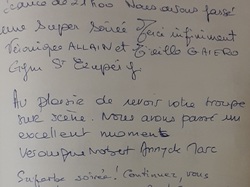 séance de 21h00 Nous avons passé
une super soirée Merci infiniment
Véronique ALLAIN et
Gym St Exupéry
Au plaisir de revoir votre troupe
sur scène. Nous avons passé un
excellent moment
Véronique Norbert Annyck Marc
Superbe soirée! Continuez, vous